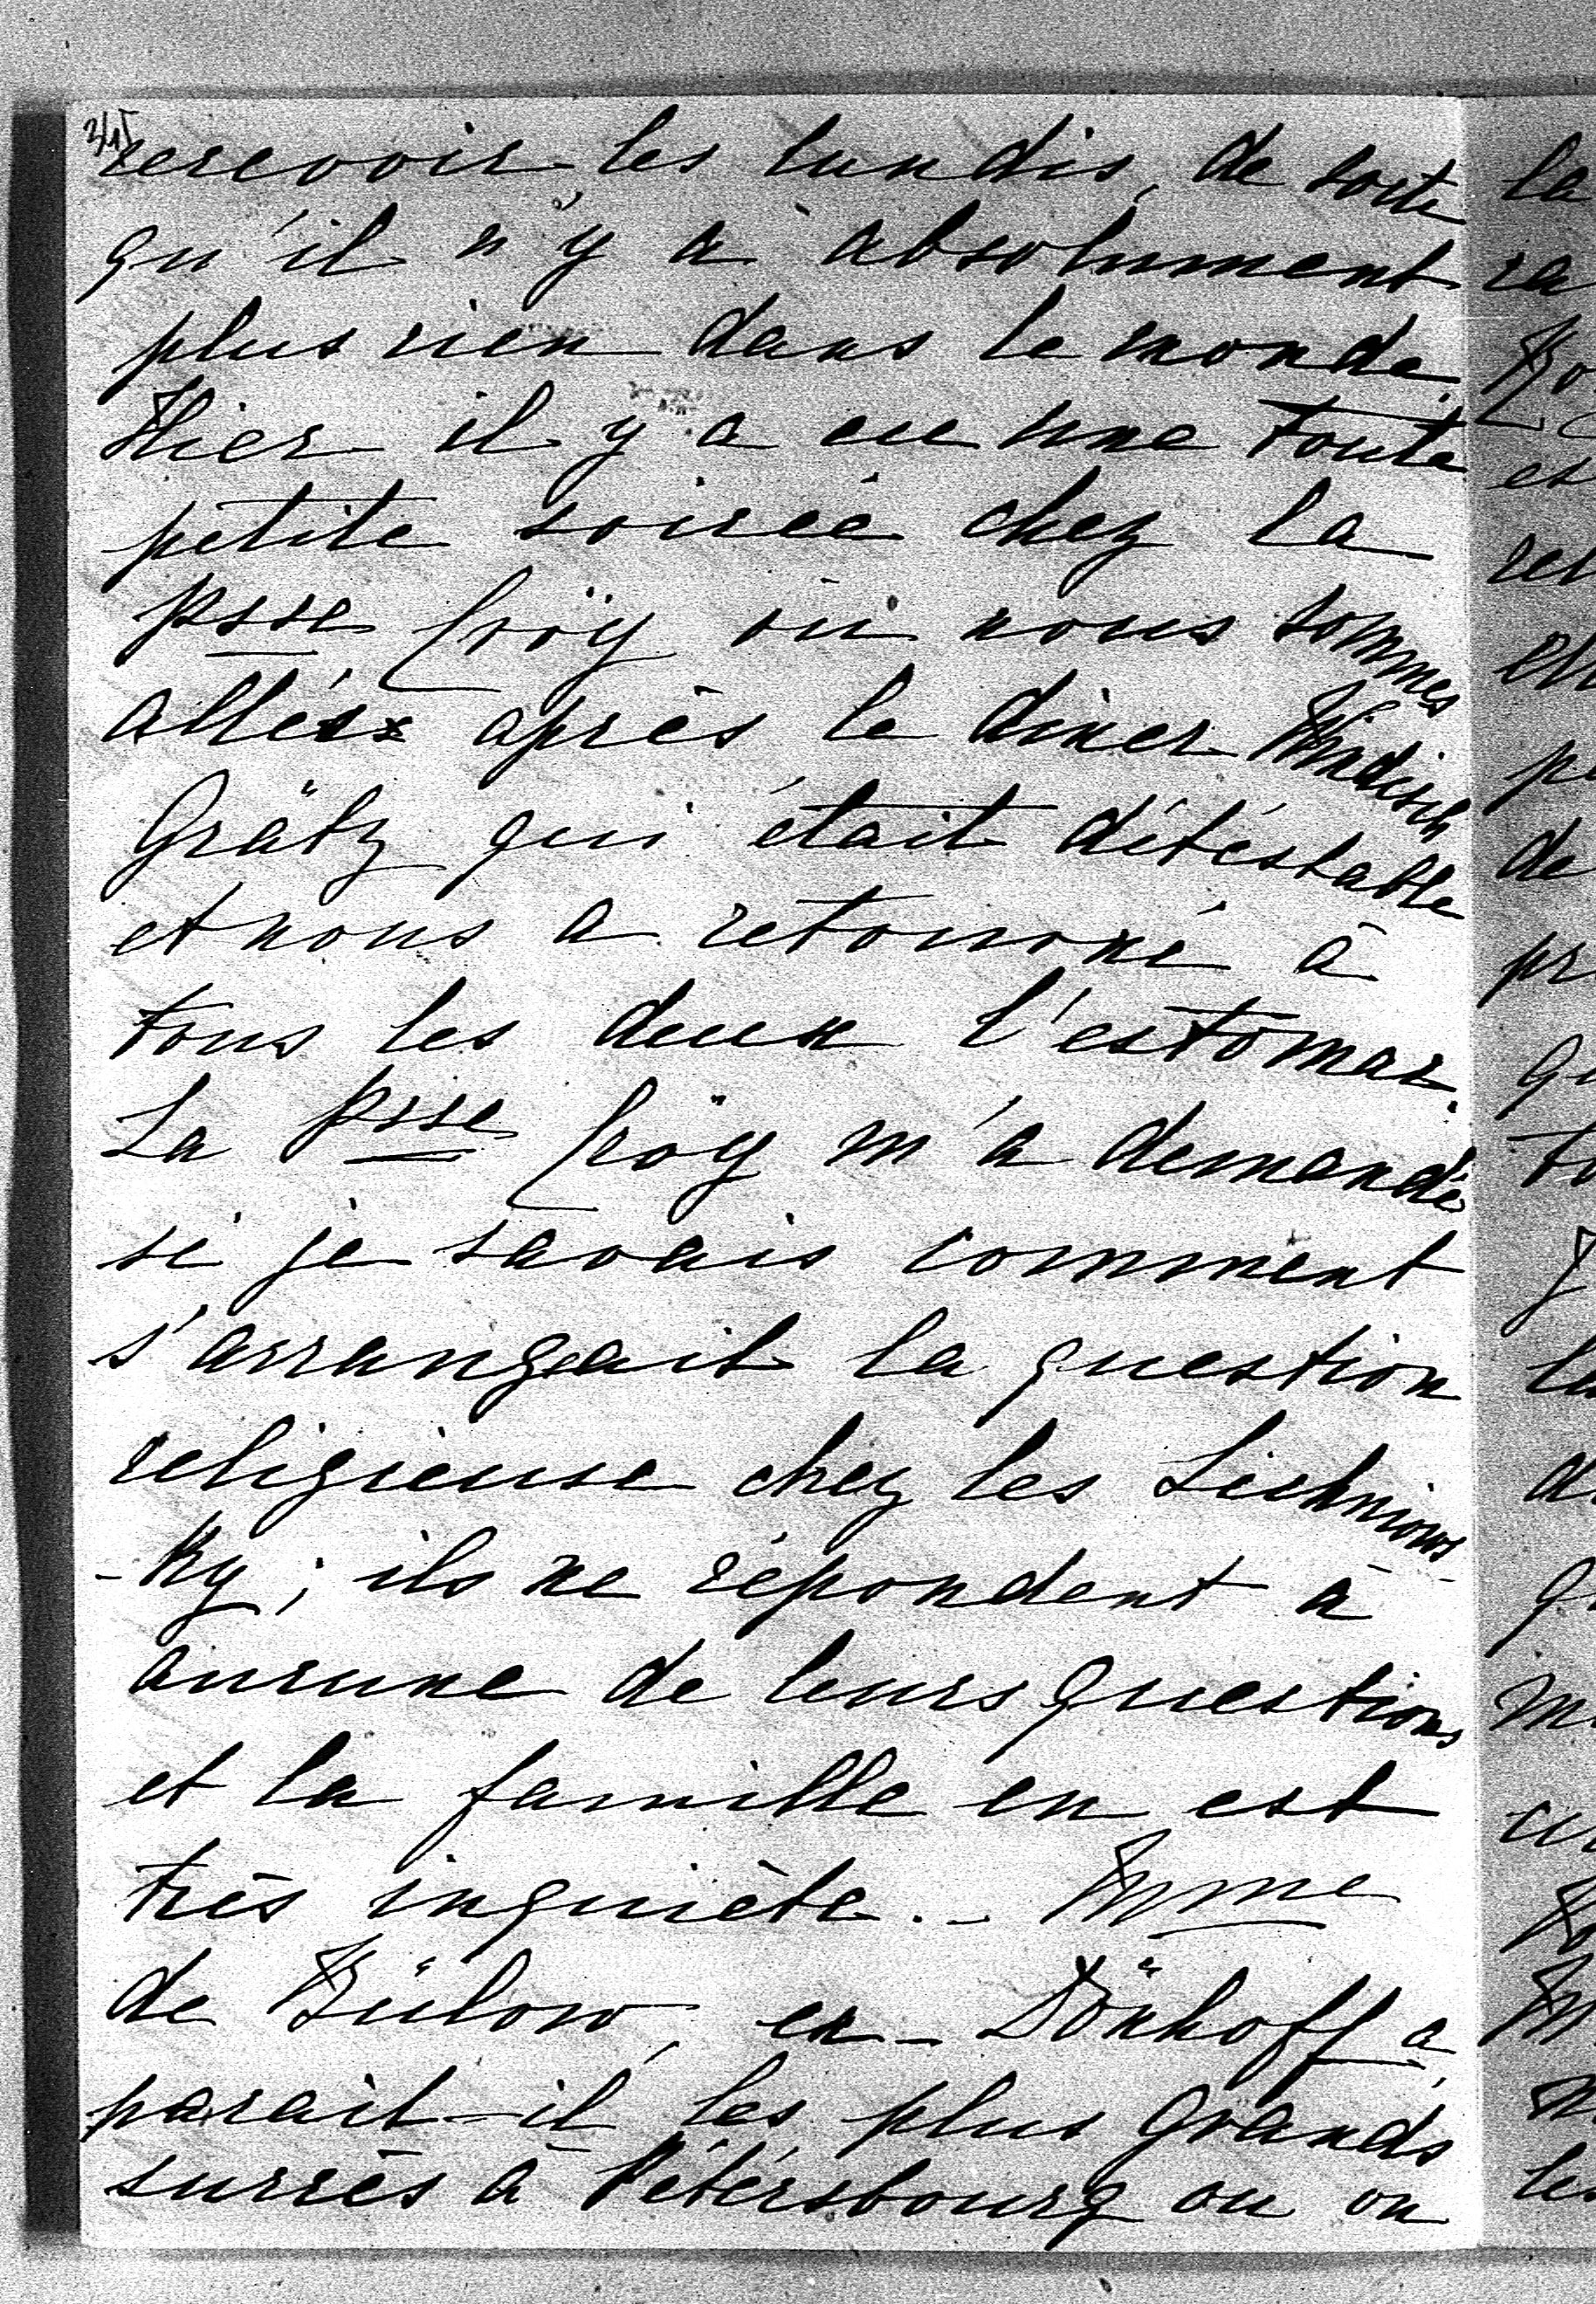 345
recevoir les lundis, de sorte
qu'il n'y a absolument
plus rien dans le monde.
Hier il y a eu une toute
petite soirée chez la
Psse Croÿ où nous sommes
allés après le diner Windisch
Grätz qui était détéstable
et nous a retourné à
tous les deux l'estomac.
La Psse Croÿ m'a demandé
si je savais comment
s'arrangeait la question
religieuse chez les Lichnows-
-ky; ils ne répondent à
aucune de leurs questions
et la famille en est
très inquiète. - Mme
de Bülow, ex-Dönhoff a,
parait-il les plus grands
succès à Pétérsbourg ou on